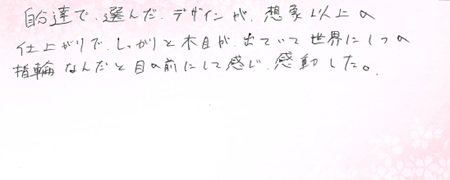 自分達で選んだデザインが、想象以上の
仕上がりで、しっかりと木目が出ていて世界に1つの
指輪なんだと目の前にして感じ、感動した。